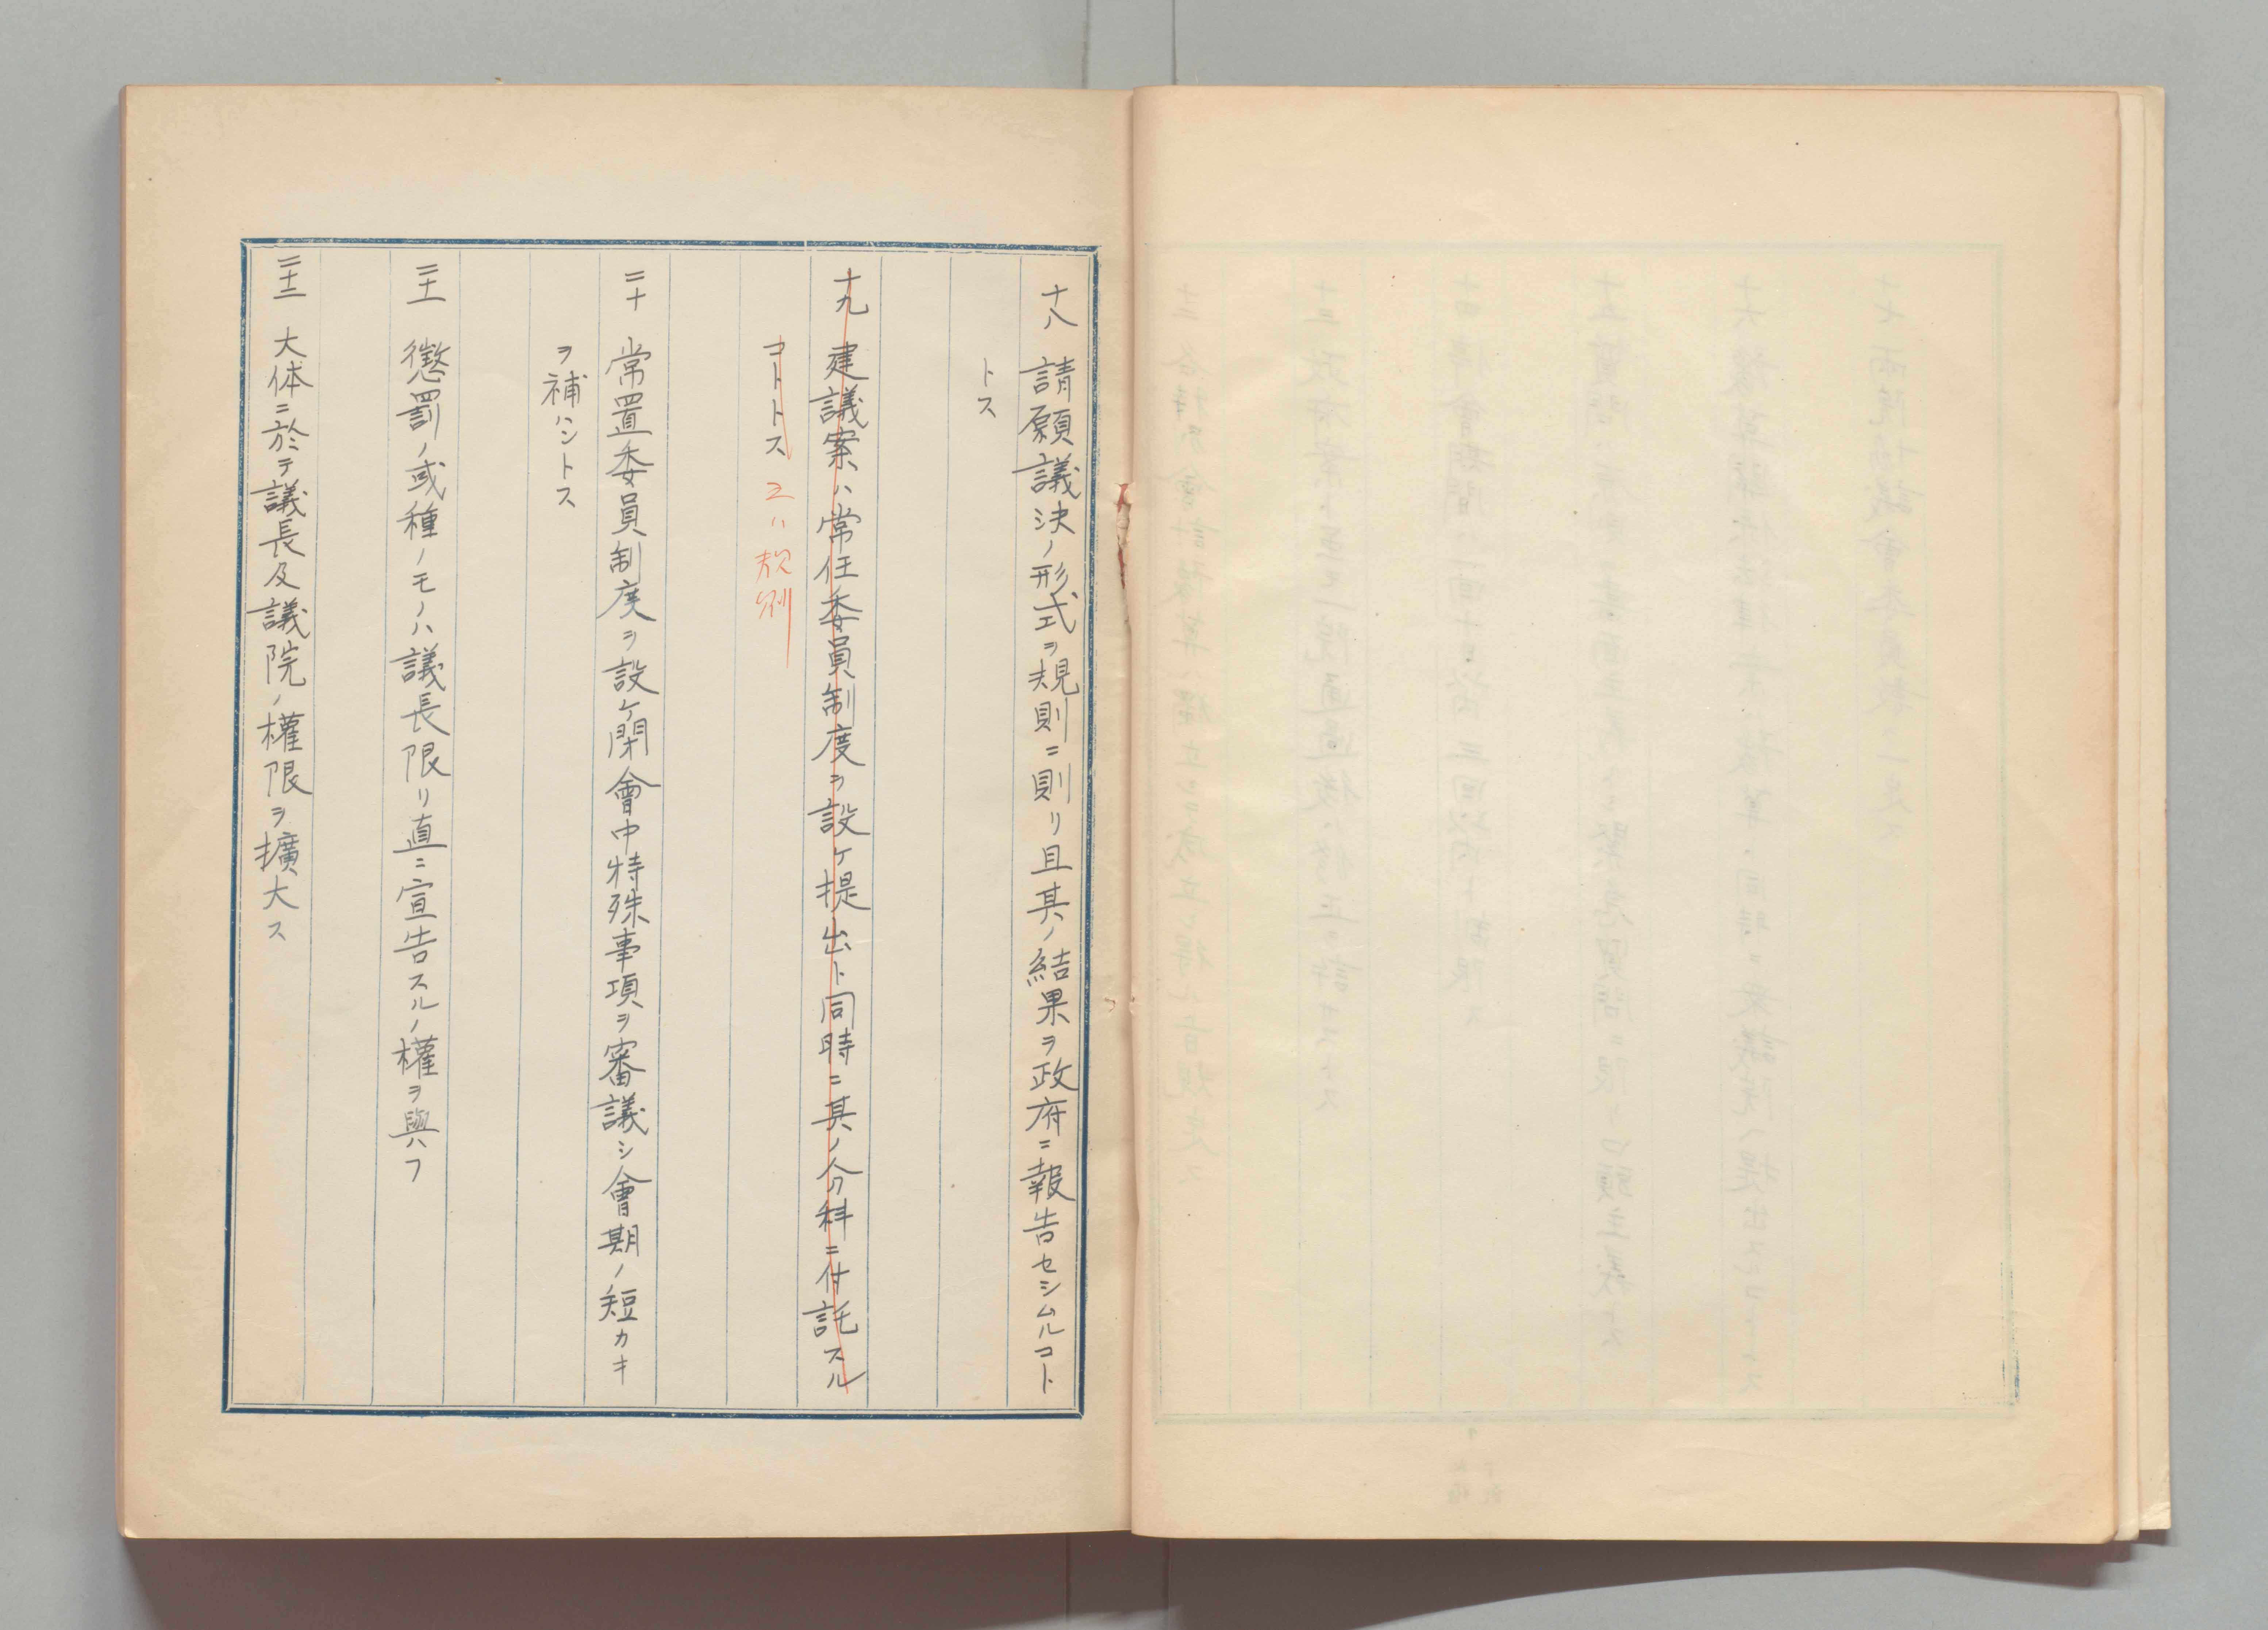 十八 請願議決ノ形式ヲ規則ニ則リ且其ノ結果ヲ政府ニ報告セシムルコト
トス
十九 建議案ハ常任委員制度ヲ設ケ提出ト同時ニ其ノ分科ニ付託スル
コトトス
規則
二十 常置委員制度ヲ設ケ閉會中特殊事項ヲ審議シ會期ノ短カキ
ヲ補ハントス
二十一 懲罰ノ或種ノモノハ議長限リ直ニ宣告スルノ權ヲ與フ
二十二 大体ニ於テ議長及議院ノ權限ヲ擴大ス